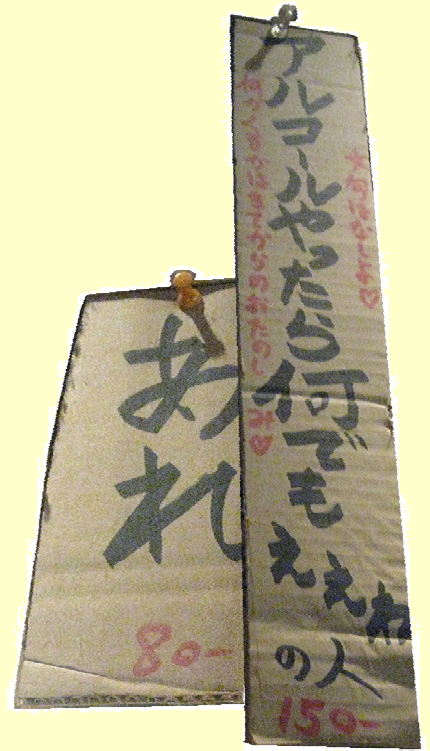 アルコールやったら何でもええね
の人
何が入るかはきてからのおたのしみ♡
150-
あれ
80-